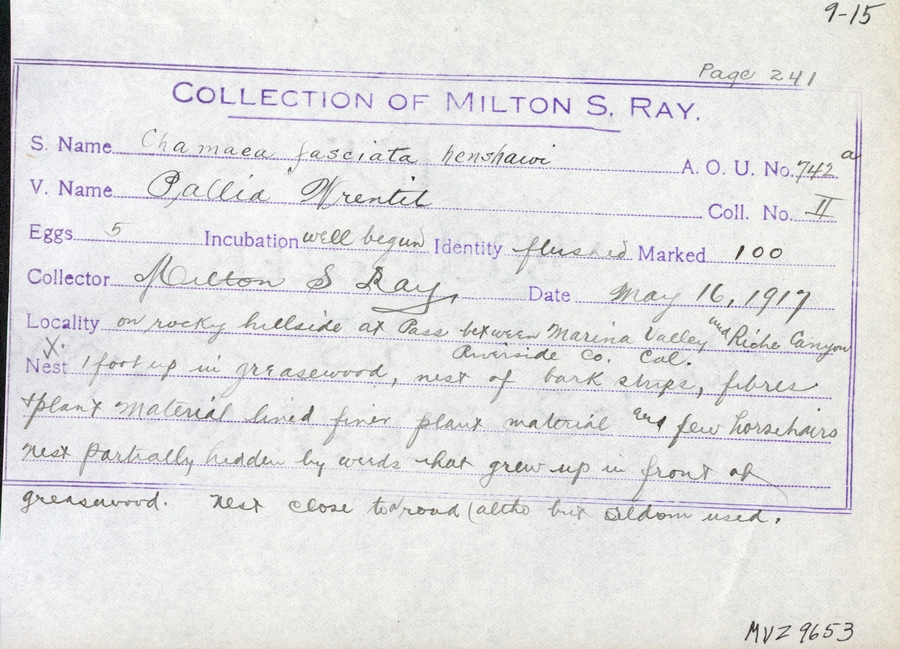 9-15
Page 241
COLLECTION OF MILTON S. RAY.
S. Name Chamaea fasciata henshawi A. O. U. No. 742 a
V. Name Pallid Wrentit Coll. No. II
Eggs 5 Incubation well begun Identity flushed Marked 100
Collector Milton S Ray, Date May 16, 1917
Locality on rocky hillside at Pass between Marina Valley and Riche Canyon
Riverside Co. Cal.
X.
Nest 1 foot up in greasewood, nest of bark strips, fibres
+ plant material lined finer plant material and few horsehairs
nest partially hidden by weeds that grew up in front of
greasewood. Nest close to a road (altho but seldom used.
MVZ 9653